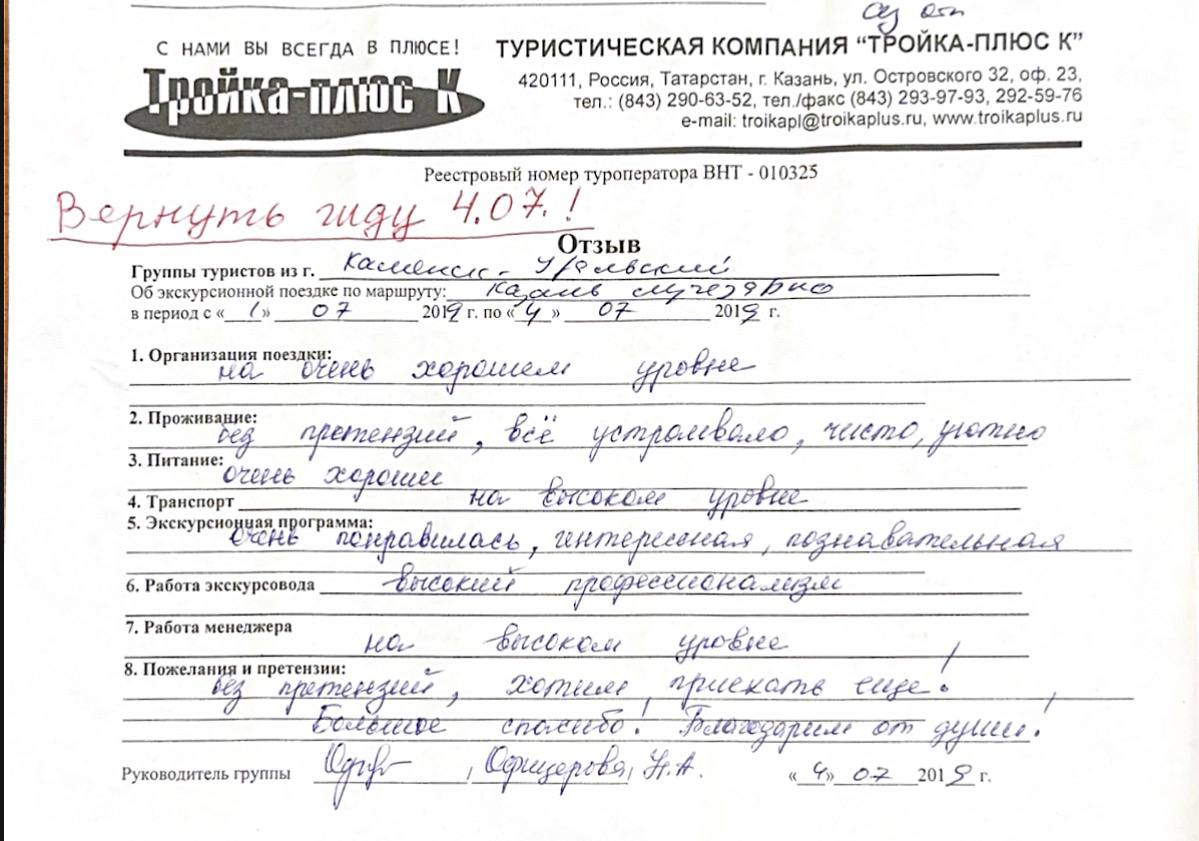 С НАМИ ВЫ ВСЕГДА В ПЛЮСЕ!
Тройка-плюс К
ТУРИСТИЧЕСКАЯ КОМПАНИЯ “ТРОЙКА-ПЛЮС К”
420111, Россия, Татарстан, г. Казань, ул. Островского 32, оф. 23,
тел.: (843) 290-63-52, тел./факс (843) 293-97-93, 292-59-76
e-mail: troikapl@troikaplus.ru, www.troikaplus.ru
Реестровый номер туроператора ВНТ - 010325
Вернуть гиду 4.07.!
Отзыв
Группы туристов из г. Каменск-Уральский
Об экскурсионной поездке по маршруту: Казань лучезарно
в период с «1» 07 2019 г. по «4» 07 2019 г.
1. Организация поездки:
на очень хорошем уровне
2. Проживание:
без претензий, всё устроивало, чисто, уютно
3. Питание:
очень хорошее
4. Транспорт на высоком уровне
5. Экскурсионная программа:
очень понравилась, интересная, познавательная
6. Работа экскурсовода высокий профессионализм
7. Работа менеджера
на высоком уровне
8. Пожелания и претензии:
без претензий, хотим приехать еще!
Большое спасибо! Благодарим от души!
Руководитель группы / Офицерова, Н.А. «4» 07 2019 г.